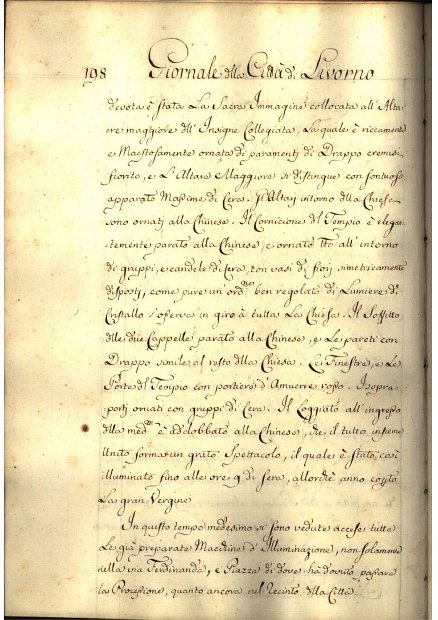 198 Giornale della Città di Livorno
devota è stata La Sacra Immagine collocata all' Alta-
re maggiore dll' Insigne Collegiata, La quale è riccamente
e Maestosamente ornata di paramenti di Drappo cremisi
fiorito, e L'Altare Maggiore si distingue con sontuoso
apparato Massime di Cera. Gl'Altarj intorno dlla Chiesa
sono ornatj alla Chinese. Il Cornicione dl Tempio è elegan-
temente parato alla Chinese, e ornato tto all' intorno
di gruppi, e candele di Cera, con vasi di fiorj simetricamente
dispostj, come pure un' ordne ben regolato di Lumiere di
Cristallo s'osserva in giro à tutta La Chiesa. Il Soffitto
dlle due Cappelle parato alla Chinese, e Le pareti con
Drappo simile al resto dlla Chiesa. Le Finestre, e Le
Porte dl Tempio con portiere d'Amuerre rosso. I sopra-
portj ornati con gruppi di Cera. Il Loggiato all' ingresso
dlla medma è addobbato alla Chinese, che il tutto insieme
Unito formarun grato Spettacolo, il quale è stato così
illuminato fino alle ore 9 di sera, allorchè anno
La gran Vergine
In questo tempo medesimo si sono vedute accese tutte
Le già preparate Macchine d'Illuminazione, non solamente
nella via Ferdinanda, e Piazza di dove hà dovuto passare
La Processione, quanto ancora nel Recinto dlla Città